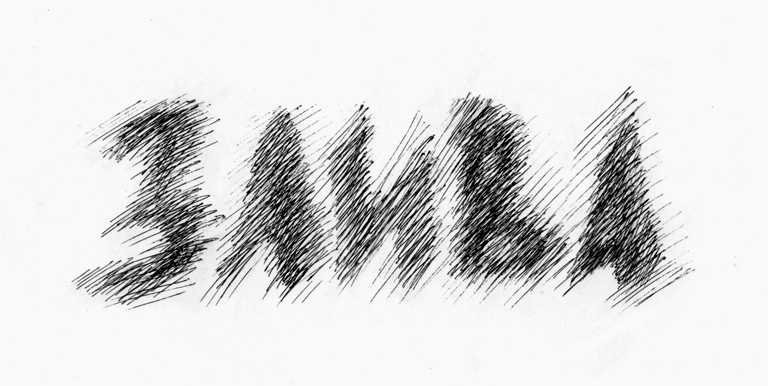 ЗЛИВА